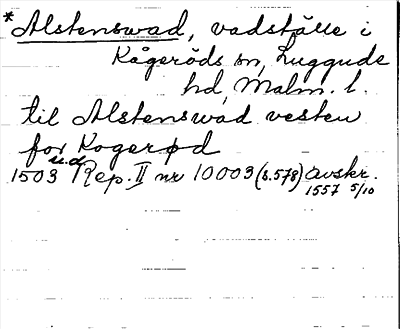 *Alstenswad, vadställe i
Kågeröds sn, Luggude
hd, Malm. l.
til Alstenswad vesten
for Kogerød
1503 u.d. Rep. II nr 10003 (s.578) avskr.
1557 5/10